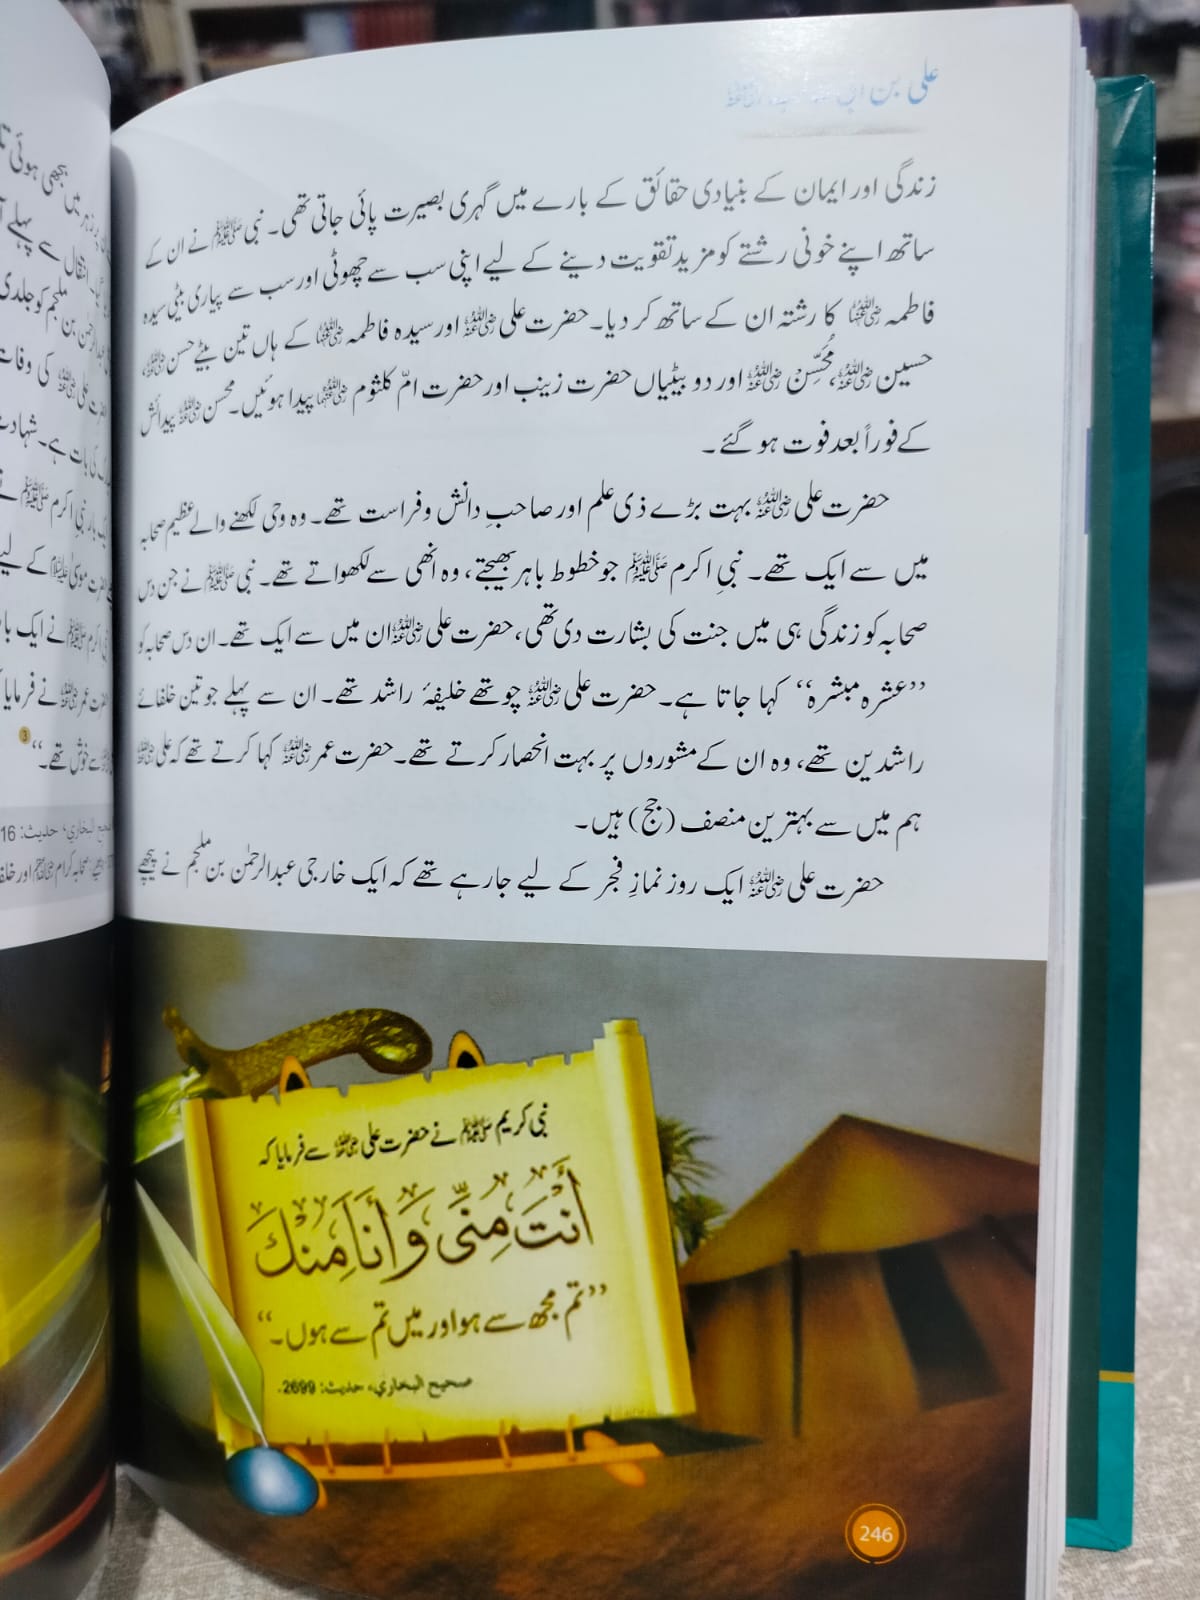 علی بن
زندگی اور ایمان کے بنیادی حقائق کے بارے میں گہری بصیرت پائی جاتی تھی۔ نبی ﷺ نے ان کے
ساتھ اپنے خونی رشتے کو مزید تقویت دینے کے لیے اپنی سب سے چھوٹی اور سب سے پیاری بیٹی سیدہ
فاطمہ رضی اللہ عنہا کا رشتہ ان کے ساتھ کر دیا۔ حضرت علی رضی اللہ عنہ اور سیدہ فاطمہ رضی اللہ عنہا کے ہاں تین بیٹے حسن رضی اللہ عنہ،
حسین رضی اللہ عنہ، مُحَسِّنْ رضی اللہ عنہ اور دو بیٹیاں حضرت زینب اور حضرت امّ کلثوم رضی اللہ عنہما پیدا ہوئیں۔ محسن رضی اللہ عنہ پیدائش
کے فوراً بعد فوت ہو گئے۔
حضرت علی رضی اللہ عنہ بہت بڑے ذی علم اور صاحبِ دانش و فراست تھے۔ وہ وحی لکھنے والے عظیم صحابہ
میں سے ایک تھے۔ نبیِ اکرم ﷺ جو خطوط باہر بھیجتے، وہ انھی سے لکھواتے تھے۔ نبی ﷺ نے جن دس
صحابہ کو زندگی ہی میں جنت کی بشارت دی تھی، حضرت علی رضی اللہ عنہ ان میں سے ایک تھے۔ ان دس صحابہ کو
”عشرہ مبشرہ“ کہا جاتا ہے۔ حضرت علی رضی اللہ عنہ چوتھے خلیفۂ راشد تھے۔ ان سے پہلے جو تین خلفائے
راشدین تھے، وہ ان کے مشوروں پر بہت انحصار کرتے تھے۔ حضرت عمر رضی اللہ عنہ کہا کرتے تھے کہ علی رضی اللہ عنہ
ہم میں سے بہترین منصف (جج) ہیں۔
حضرت علی رضی اللہ عنہ ایک روز نمازِ فجر کے لیے جا رہے تھے کہ ایک خارجی عبدالرحمٰن بن ملجم نے پیچھے
نبی کریم ﷺ نے حضرت علی رضی اللہ عنہ سے فرمایا کہ
أَنْتَ مِنِّي وَأَنَا مِنْكَ
”تم مجھ سے ہو اور میں تم سے ہوں۔“
صحيح البخاري، حديث: 2699.
246
میں بجھی ہوئی
انتقال سے پہلے
بن ملجم کو جلدی
کی وفات
کی بات ہے۔ شہادت
نبیِ اکرم ﷺ
حضرت موسیٰ علیہ السلام کے لیے
اکرم ﷺ نے ایک بار
حضرت عمر رضی اللہ عنہ نے فرمایا
سے خوش تھے۔“ 3
صحيح البخاري، حديث: 16
صحابہ کرام رضی اللہ عنہم اور